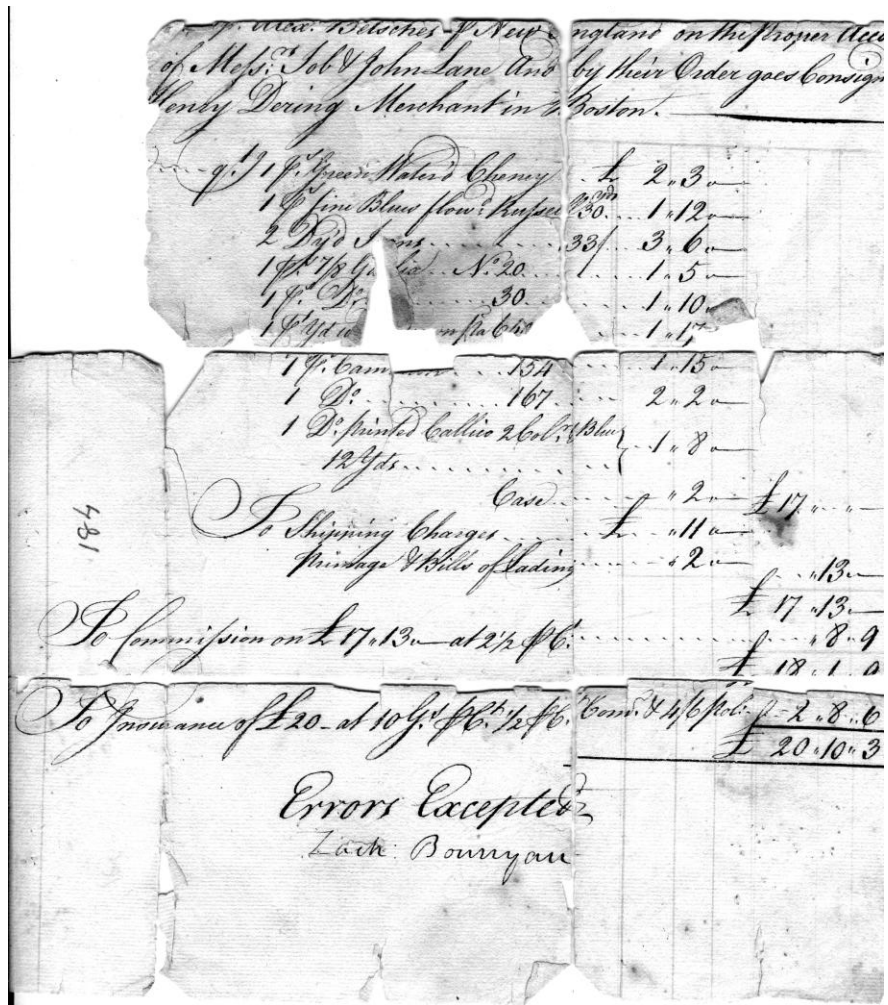 Alex. Belscher p New England on the proper Acco
of Mess:rs Job & John Lane And by their Order goes Consign
Henry Dering Merchant in Boston.
q.t 1 p.s Green Water'd Cheney £ 2 " 3 "
1 p fine Blue flow.d Russel 30 yds 1 " 12 "
2 Dy'd 33/ 3 " 6 "
1 p. 7/8 N.o 20 1 " 5
1 p. D.o 30 1 " 10
1 p.s Yd w 1 " 17
1 p. Cam 154 1 " 15
1 D.o 167 2 " 2 "
1 D.o printed Callico 2 Col.rs & Blue
12 Yds 1 " 8 "
Case " 2 " £ 17 " "
184
To Shipping Charges £ " 11 "
Primage & Bills of Lading " 2 "
" 13 "
£ 17 " 13
To Commission on £ 17 " 13 " at 2 1/2 p C.t " 8 " 9
£ 18 " 1 " 9
To Insurance of £ 20 - at 10 G.s p C.t 1/2 p C. Com.n & 4/6 Poli £ 2 " 8 " 6
£ 20 " 10 " 3
Errors Excepted
Zach: Bournyau